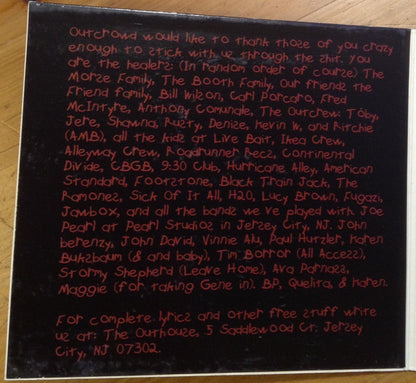 Outcrowd would like to thank those of you crazy
enough to stick with us through the shit. You
are the healers: (In random order of course) The
Morse Family, The Booth Family, Our friends the
Friend family, Bill Wilson, Carl Porcaro, Fred
McIntyre, Anthony Comunale, The Outcrew Toby,
Jere, Shawna, Rusty, Denise, Kevin W, and Ritchie
(A.M.B), all the kids at Live Bait, Ikea Crew,
Alleyway Crew, Roadrunner Recs, Continental
Divide, CBGB, 9:30 Club, Hurricane Alley, American
Standard, Footstone, Black Train Jack, The
Ramones, Sick Of It All, H2O, Lucy Brown, Fugazi,
Jawbox, and all the bands we've played with Joe
Pearl at Pearl Studios in Jersey City, NJ. John
berensy, John David, Vinnie Alu, Paul Hutzler, Karen
Buksbaum (& and baby), Tim Borror (All Access),
Stormy Shepherd (Leave Home), Ava Parnass,
Maggie (for taking Gene in). BP, Quelita, & Karen.
For complete lyrics and other free stuff write
us at: The Outhouse, 5 Saddlewood Ct. Jersey
City, NJ 07302.